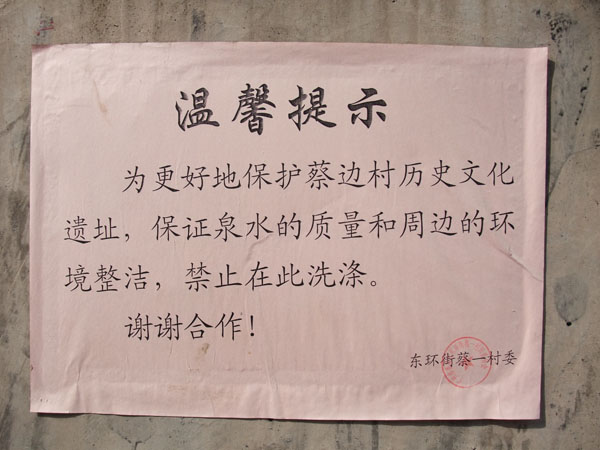 温馨提示
为更好地保护蔡边村历史文化
遗址，保证泉水的质量和周边的环
境整洁，禁止在此洗涤。
谢谢合作！
东环街蔡一村委